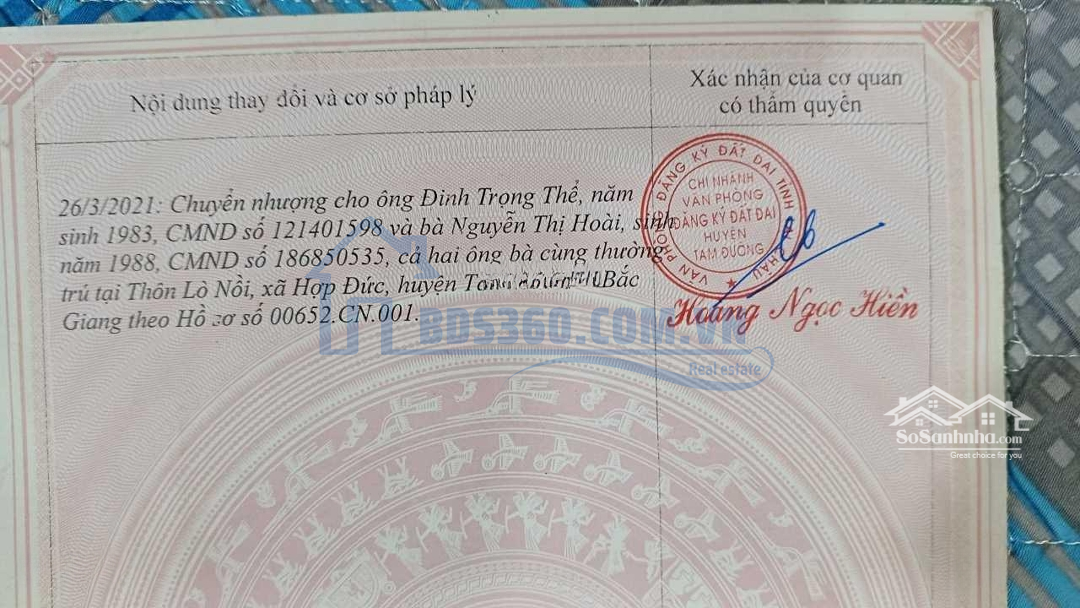 Nội dung thay đổi và cơ sở pháp lý
Xác nhận của cơ quan
có thẩm quyền
26/3/2021: Chuyển nhượng cho ông Đinh Trọng Thể, năm
sinh 1983, CMND số 121401598 và bà Nguyễn Thị Hoài, sinh
năm 1988, CMND số 186850535, cả hai ông bà cùng thường
trú tại Thôn Lò Nồi, xã Hợp Đức, huyện Bắc
Giang theo Hồ sơ số 00652.CN.001.
VĂN PHÒNG ĐĂNG KÝ ĐẤT ĐAI TỈNH CHÂU
CHI NHÁNH
VĂN PHÒNG
ĐĂNG KÝ ĐẤT ĐAI
HUYỆN
TAM ĐƯỜNG
Hoàng Ngọc Hiền
BDS360.COM.VN
Real estate
SoSanhnha.com
Great choice for you